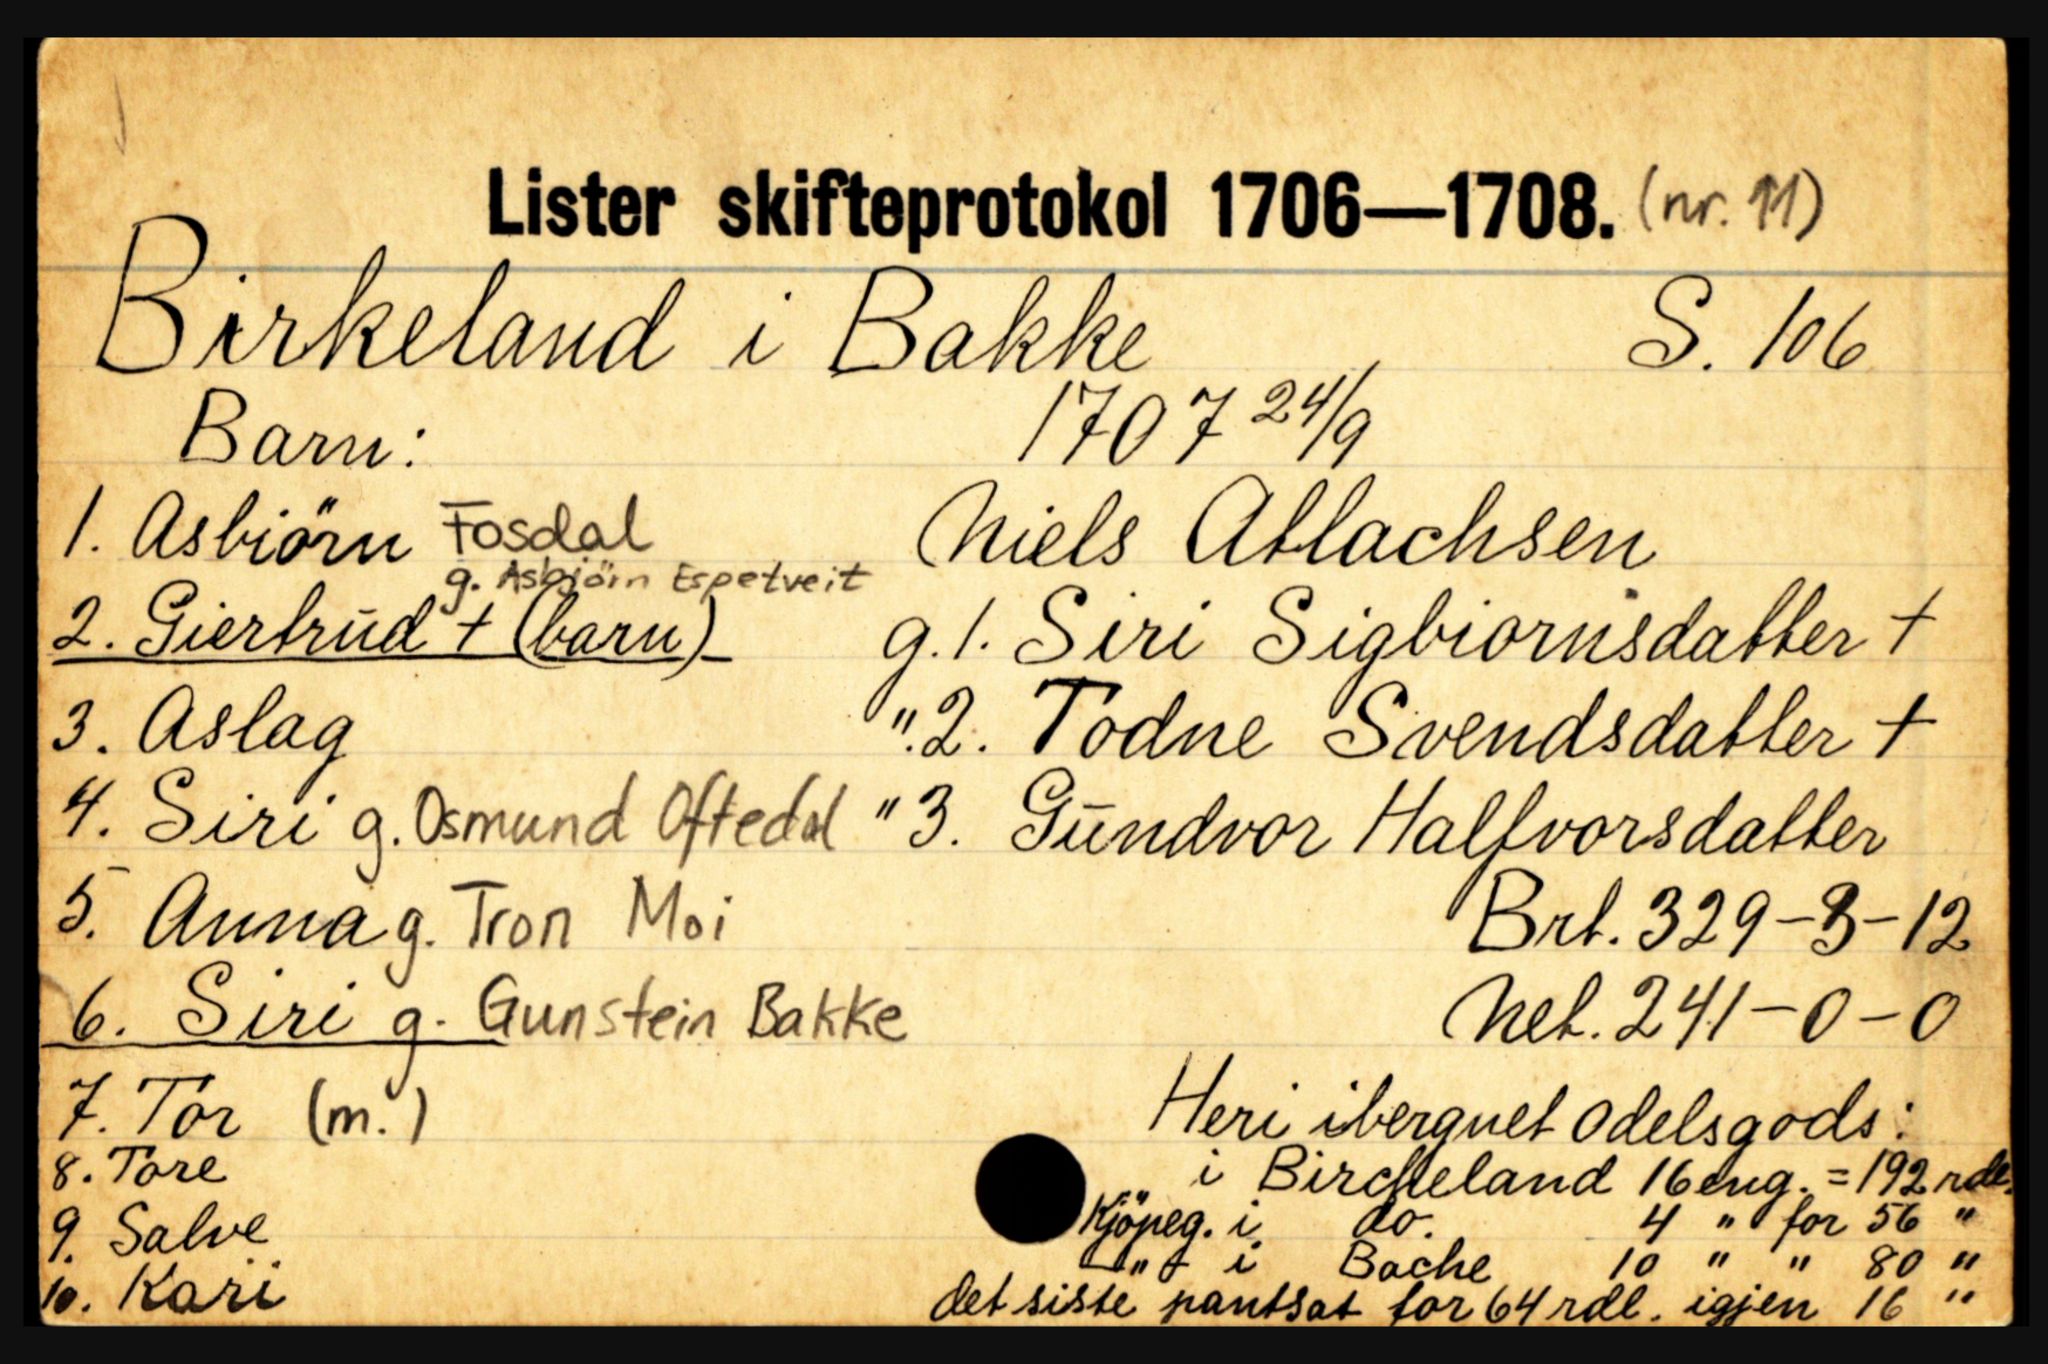 Lister skifteprotokol 1706—1708. (nr. 11)
Birkeland i Bakke S. 106
Barn: 1707 24/9
1. Asbiörn Fosdal Niels Atlachsen
g. Asbjörn Espetveit
2. Giertrud + (barn) g. 1. Siri Sigbiornsdatter +
3. Aslag ". 2. Todne Svendsdatter +
4. Siri g. Osmund Oftedal " 3. Gundvor Halfvorsdatter
5. Anna g. Tron Moi Brt. 329-3-12
6. Siri g. Gunstein Bakke Net. 241-0-0
7. Tor (m.) Heri iberegnet odelsgods:
8. Tore i Bircheland 16 eng. = 192 rdl.
9. Salve Kjöpeg. i do. 4 " for 56 "
" i Bache 10 " " 80 "
10. Kari det siste pantsat for 64 rdl. igjen 16 "